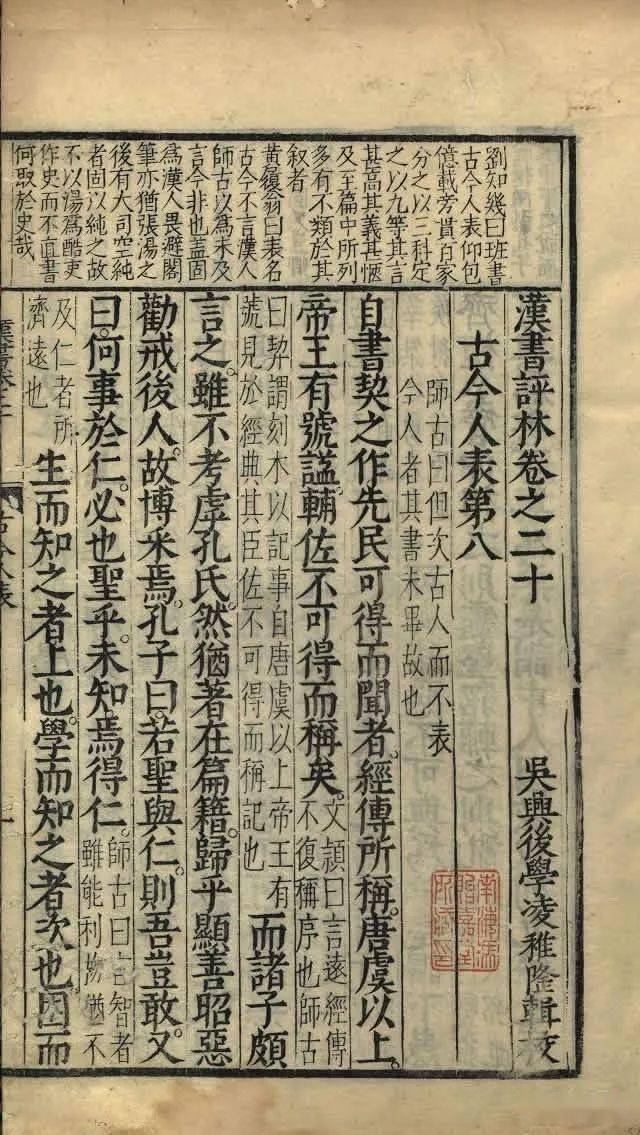 劉知幾曰班書
古今人表仰包
億載旁貫百家
分之以三科定
之以九等其言
甚高其義甚愜
及至篇中所列
多有不類於其
叙者
黄履翁曰表名
古今不言漢人
師古以為未及
言今非也蓋固
為漢人畏避閣
筆亦猶張湯之
後有大司空純
者固以純之故
不以湯為酷吏
作史而不直書
何取於史哉
漢書評林卷之二十
吳興後學凌稚隆輯校
古今人表第八
師古曰但次古人而不表
今人者其書未畢故也
自書契之作先民可得而聞者經傳所稱唐虞以上
帝王有號謚輔佐不可得而稱矣
文頴曰言遠經傳
不復稱序也師古
曰契謂刻木以記事自唐虞以上帝王有
號見於經典其臣佐不可得而稱記也
而諸子頗
言之雖不考虖孔氏然猶著在篇籍歸乎顯善昭惡
勸戒後人故博采焉孔子曰若聖與仁則吾豈敢又
曰何事於仁必也聖乎未知焉得仁
師古曰言智者
雖能利物猶不
及仁者所
濟遠也
生而知之者上也學而知之者次也困而
古今人表